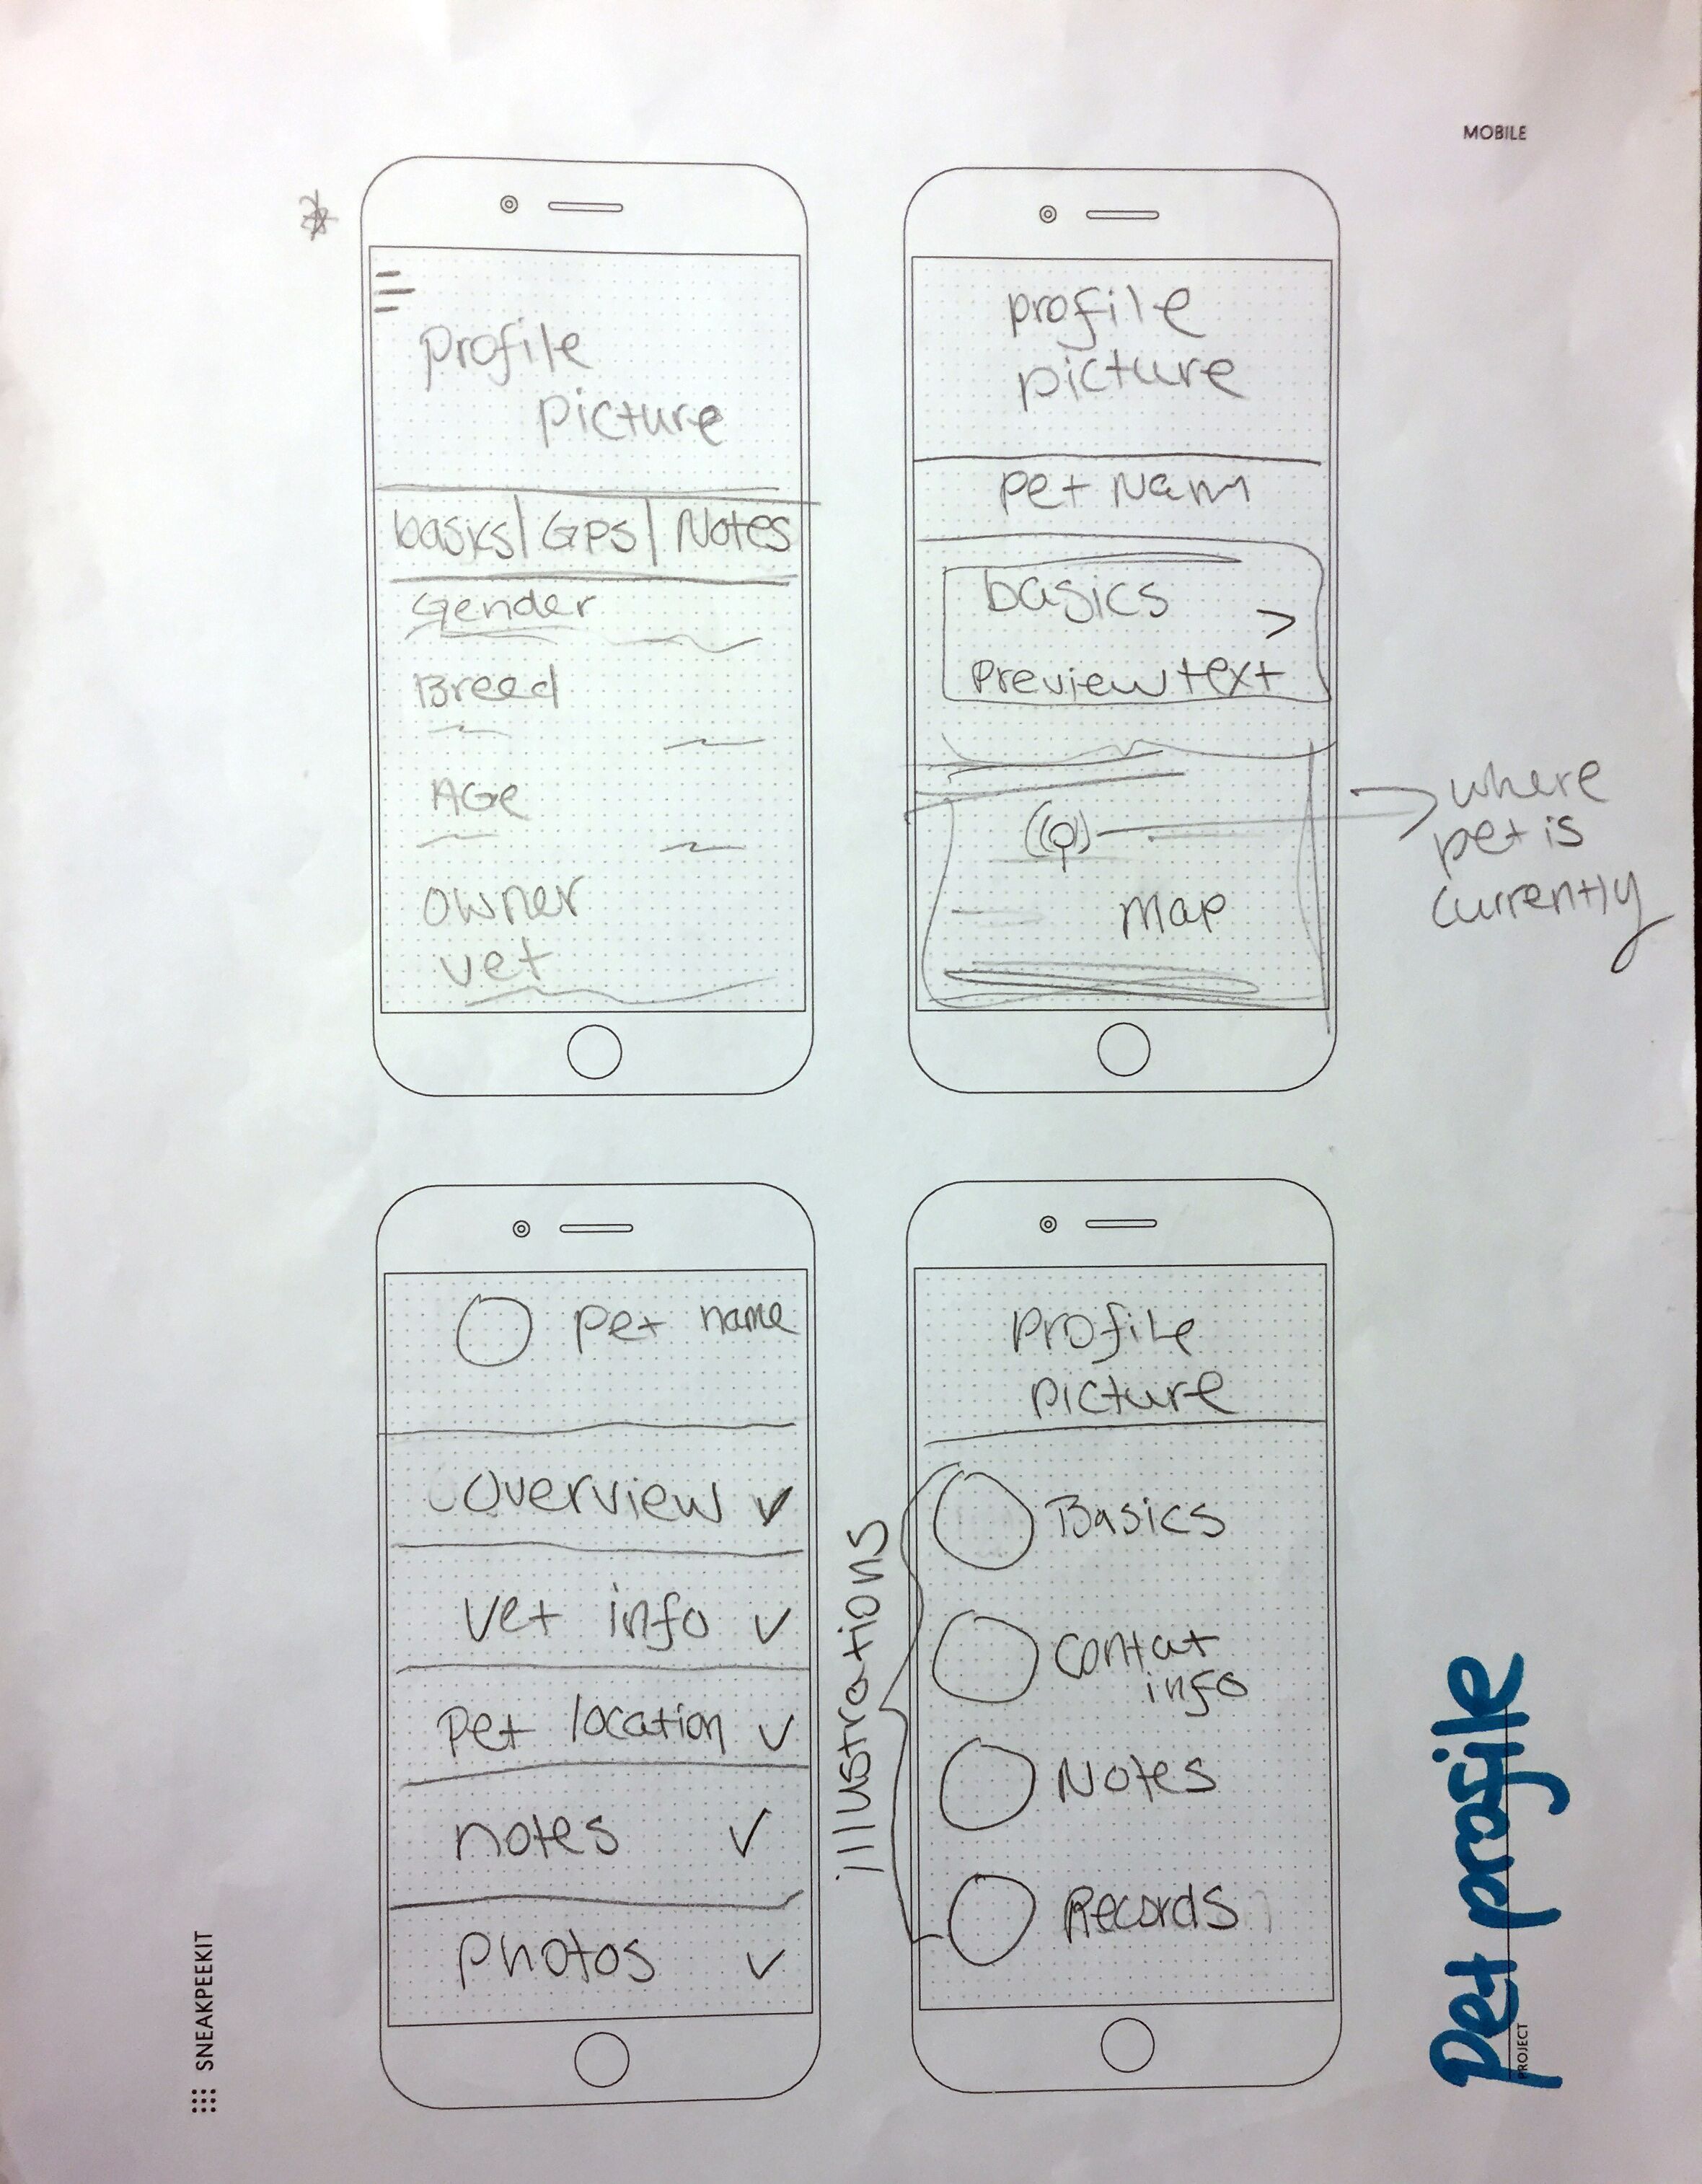 MOBILE
profile
picture
basics | GPS | Notes
Gender
Breed
AGe
owner
vet
profile
picture
pet Nam
basics
>
Preview text
Map
where
pet is
currently
pet name
Overview
vet info
Pet location
notes
photos
illustrations
Profile
picture
Basics
contat
info
Notes
Records
SNEAKPEEKIT
PROJECT
Pet profile